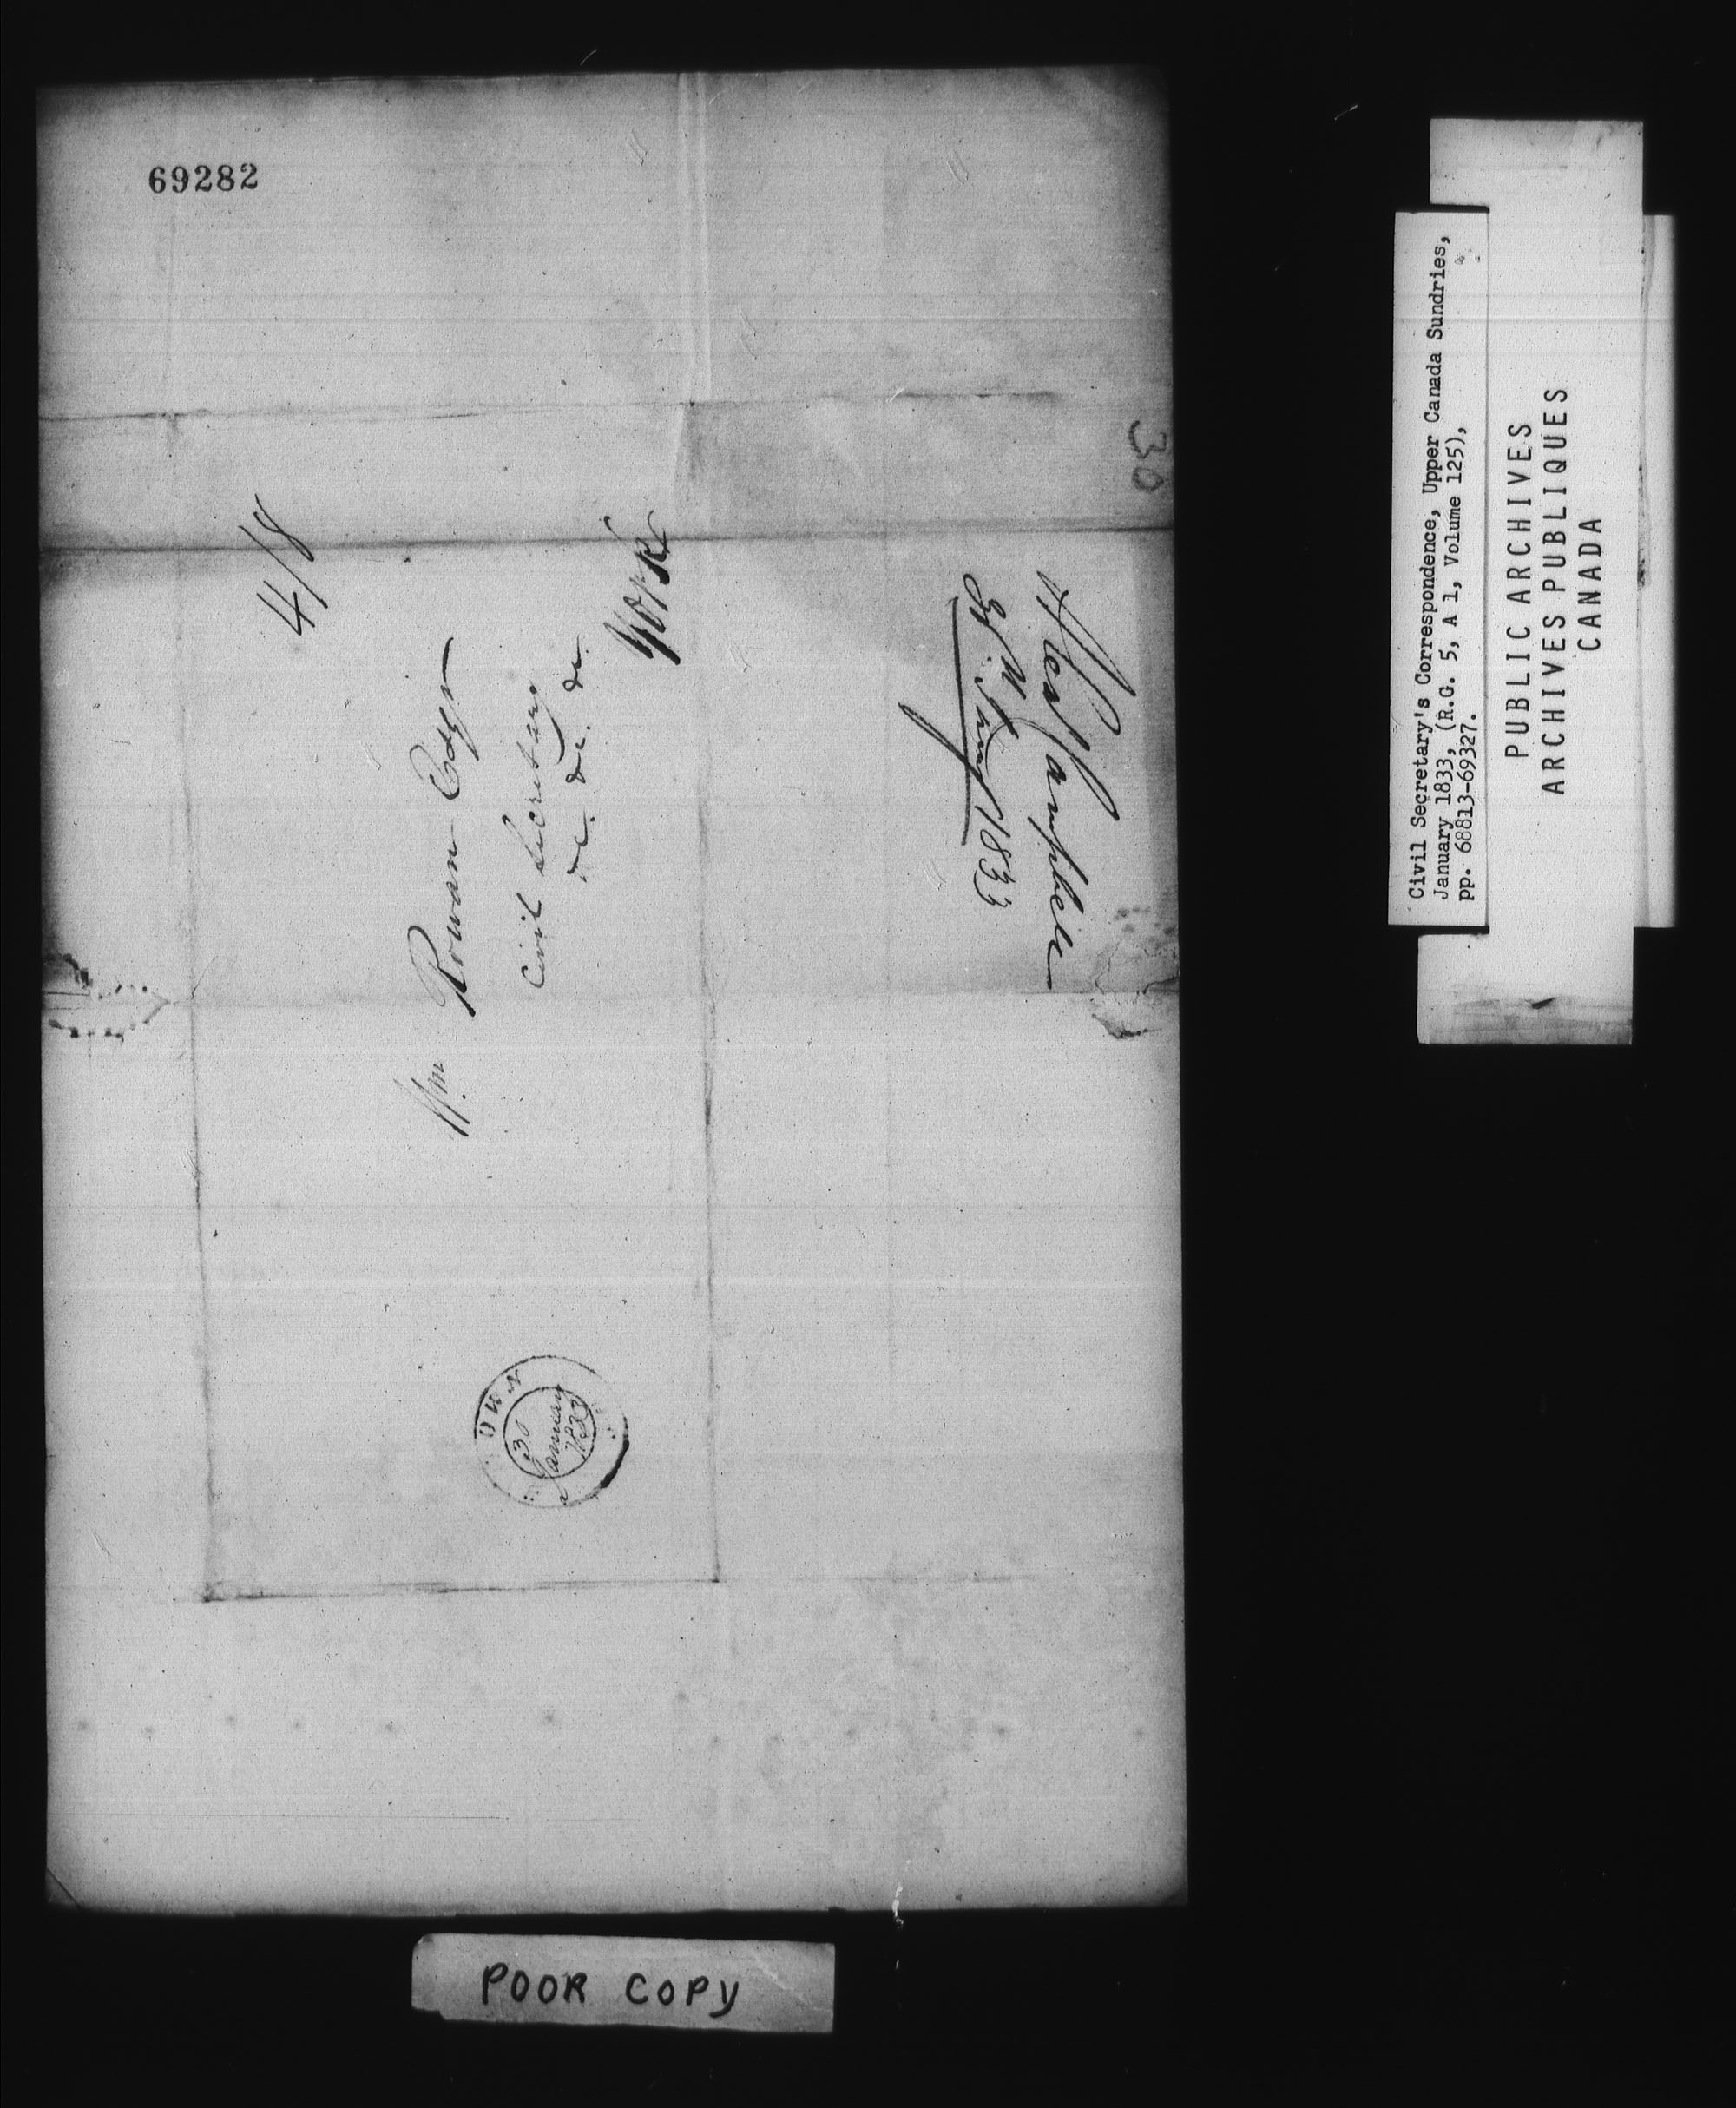 69282
4/8
Wm Rowan Esqr
Civil Secretary
&c. &c. &c.
York
30
January
1833
Alex Campbell
30
Civil Secretary's Correspondence, Upper Canada Sundries,
January 1833, (R.G. 5, A 1, Volume 125),
pp. 68813-69327.
PUBLIC ARCHIVES
ARCHIVES PUBLIQUES
CANADA
POOR COPY